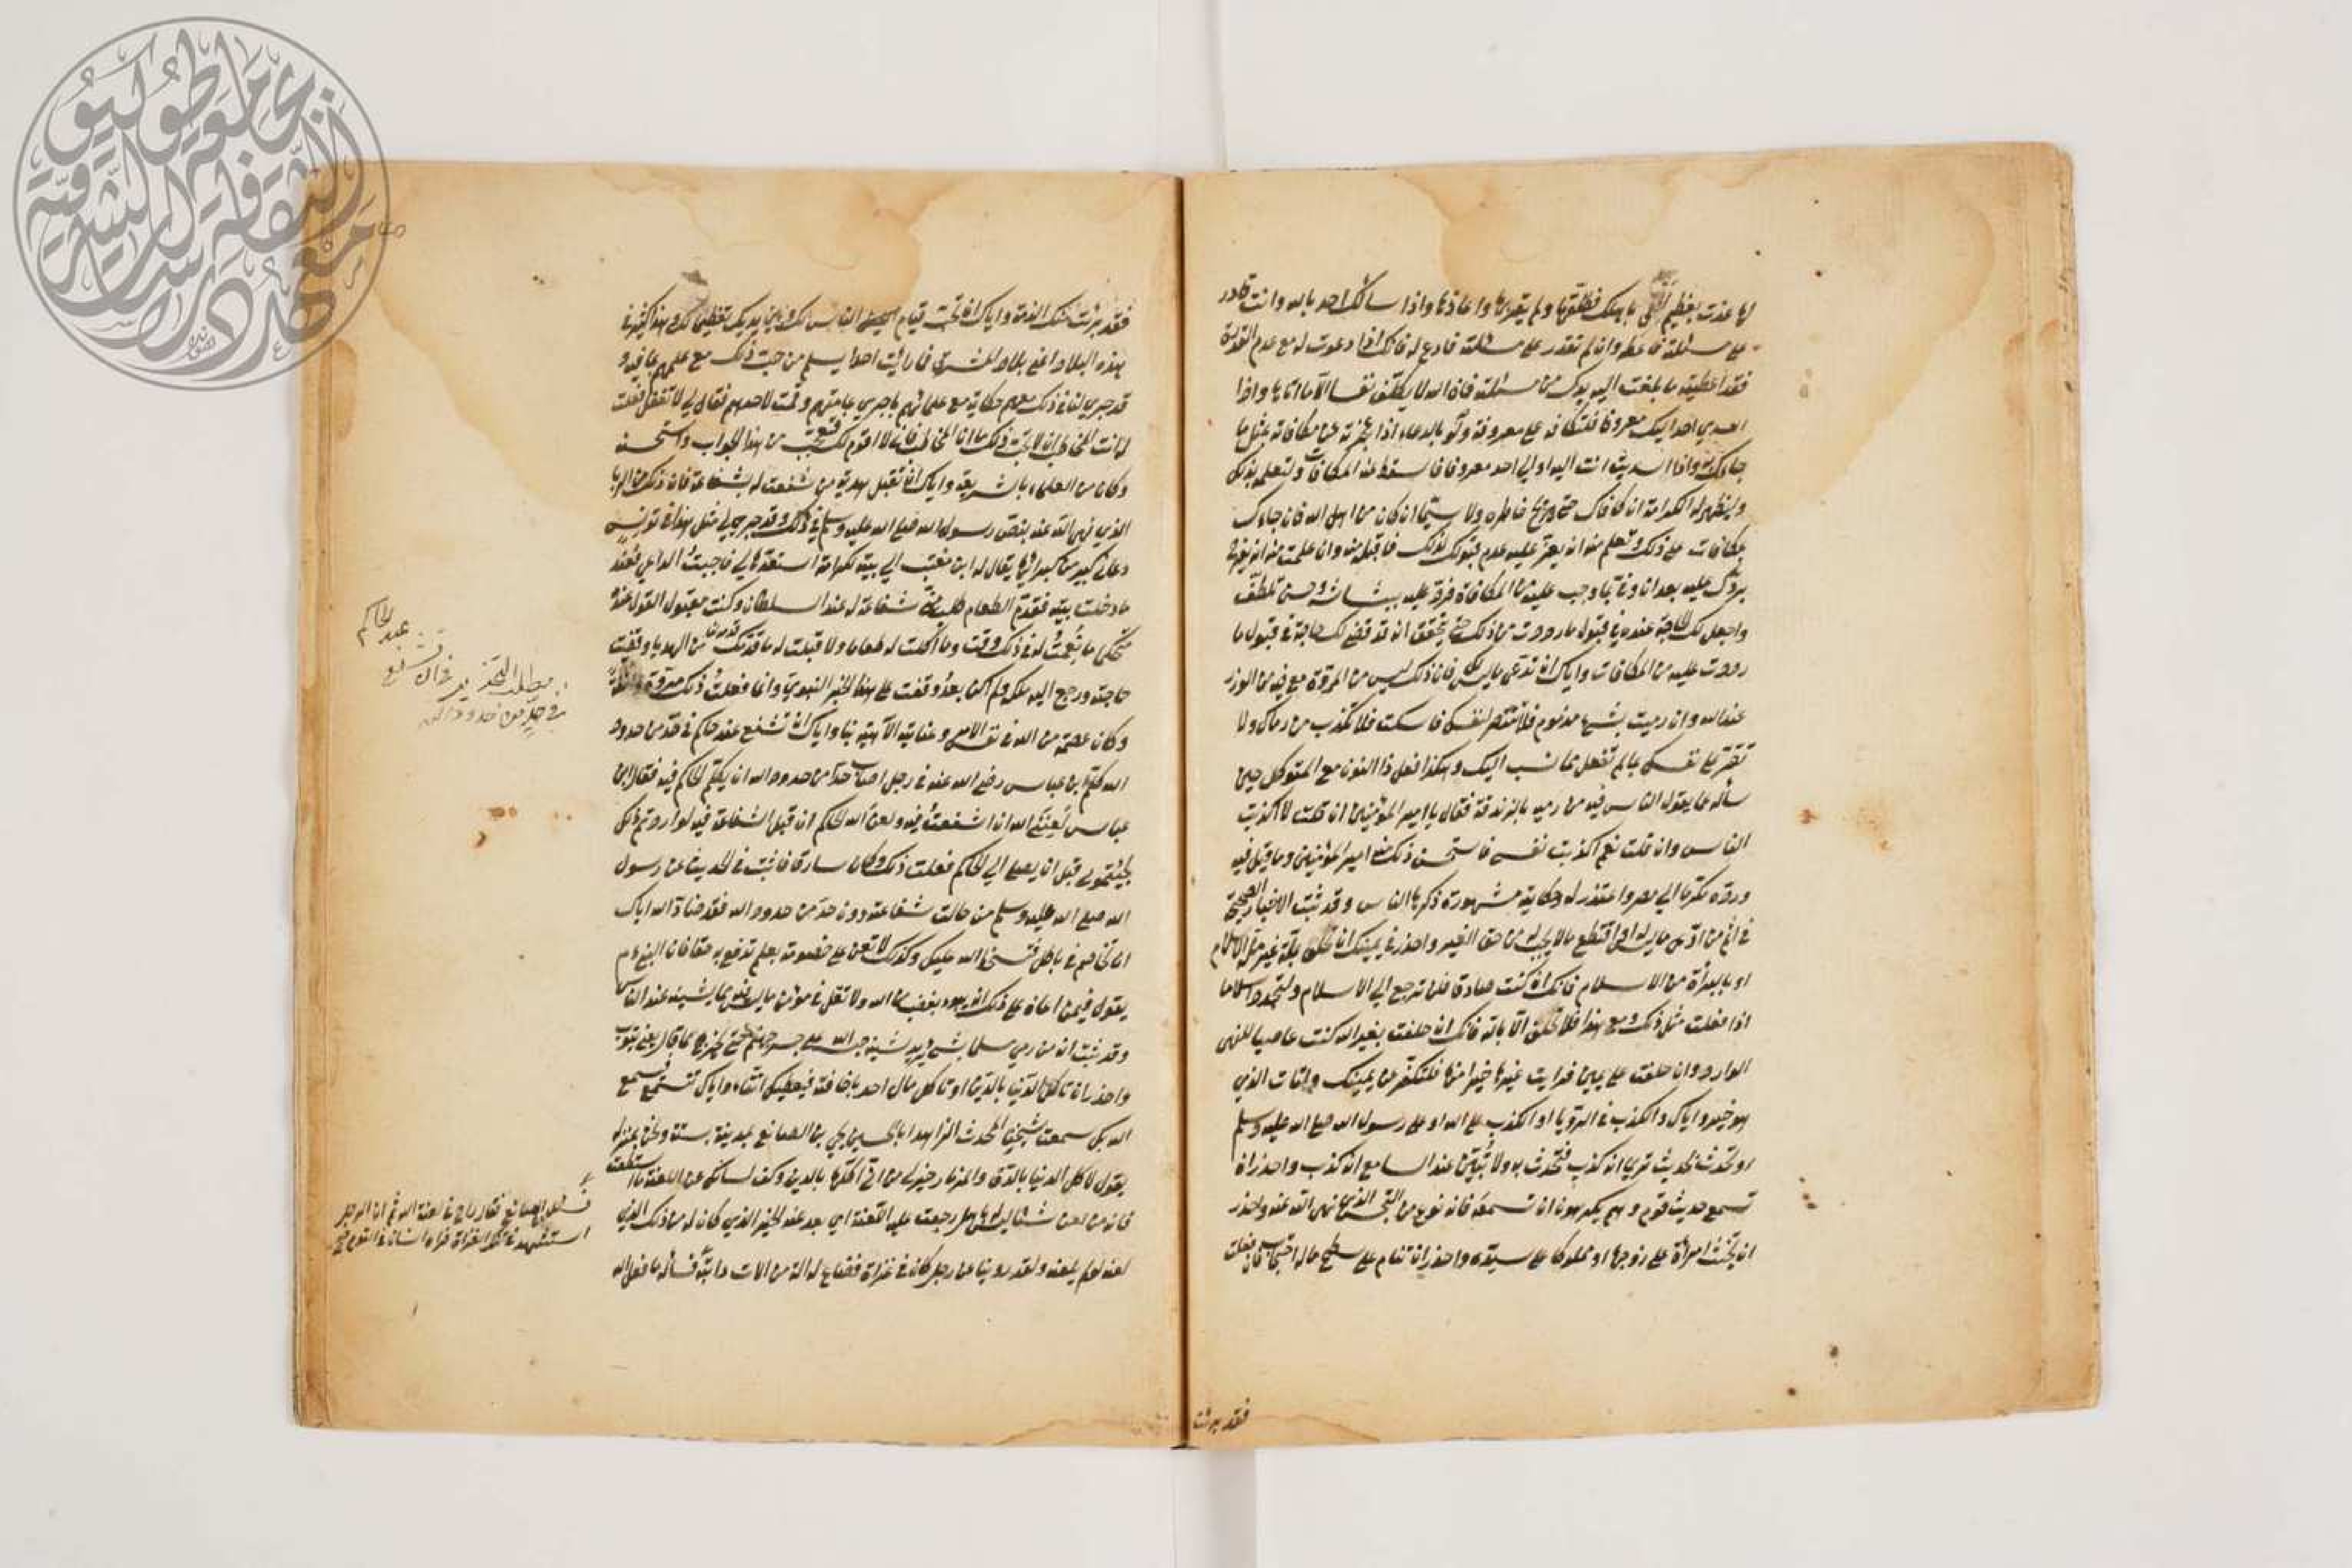 لها عذت بعظيم الحقي باهلك فطلقها ولم يقربها واعاذها واذا سالك احد بالله وانت قادر
على مسئلته فاعطه وان لم تقدر على مسئلته فادع له فانك اذا دعوت له مع عدم القدرة
فقد اعطيته ما بلغت اليه يدك من مسئلته فان الله لا يكلف نفسا الا ما اتاها واذا
اسدى احد اليك معروفا فلتكافه على معروفه ولو بالدعاء اذا عجزت عن مكافاته بمثل ما
جاءك به واذا اسديت انت الى احد معروفا فاسقط عنه المكافات ولتعلمه بذلك
وليظهر له الكراهة ان كافاك حتى يريح خاطره ولا سيما ان كان من اهل الله فان جاءك
بمكافات على ذلك وتعلم منه انه يعز عليه عدم قبولك لذلك فاقبله منه وان علمت منه انه يفرح
بردك عليه بعد ان وفى بما وجب عليه من المكافاة فرد عليه ببشاشة وحسن تلطف
واجعل لك الحاجة عنده في قبول ما رددت من ذلك حتى يتحقق انه قد قضى لك حاجة في قبوله ما
رددت عليه من المكافات واياك ان تدعى ما ليس لك فان ذلك ليس من المروة مع ما فيه من الوزر
عند الله وان رميت بشئ مذموم فلا تنتصر لنفسك فاسكت فلا تكذب من رماك ولا
تقر على نفسك بما لم تفعل مما نسب اليك وهكذا فعل ذا النون مع المتوكل حين
ساله عما يقول الناس فيه من رميه بالزندقة فقال يا امير المؤمنين ان قلت لا اكذبت
الناس وان قلت نعم اكذبت نفسي فاستحسن ذلك منه امير المؤمنين وما قبل فيه
ورده مكرما الى مصر واعتذر له وحكايته مشهورة ذكرها الناس وقد ثبت الاخبار الصحيحة
في اثم من ادعى ما ليس له او اقتطع ما لا يجب له من حق الغير واحذر في يمينك ان تحلف بملة غير ملة الاسلام
او بالبراءة من الاسلام فانك ان كنت صادقا فلن ترجع الى الاسلام ولتجدد اسلاما
اذا فعلت مثل ذلك ومع هذا فلا تحلف الا بالله فانك ان حلفت بغير الله كنت عاصيا للنهي
الوارد وان حلفت على يمين فرايت غيرها خيرا منها فلتكفر عن يمينك ولتات الذي
هو خير واياك والكذب في الرويا او الكذب على الله او على رسول الله صلى الله عليه وسلم
او تحدث بحديث ترى انه كذب فتحدث به ولا تبين عند السامع انه كذب واحذر ان
تسمع حديث قوم وهم يكرهون ان تسمعه فانه نوع من التجسس الذي نهى الله عنه واحذر
ان تخبث امراة على زوجها او مملوكا على سيده واحذر ان تنام على سطح ما له احتجار فان فعلت
فقد برئت
فقد برئت منك الذمة واياك ان تحب قيام الناس لك وبين يديك تعظيما لك وهذا كثير في
هذه البلاد اعني بلاد المشرق فما رايت احدا يسلم من حب ذلك مع علمهم بما فيه و
قد جرى لنا في ذلك معهم حكاية مع علمائهم فاجرى بعامتهم وقمت لاحدهم فقال لي لا تفعل فقلت
وكان من العلماء بالشريعة واياك ان تقبل هدية من شفعت له بشفاعة فان ذلك من الربا
الذي نهى الله عنه بنص رسول الله صلى الله عليه وسلم في ذلك وقد جرى لي مثل هذا في تونس
دعاني كبير من كبرائها يقال له ابن مغيث الى بيته لكرامة استعدها لي فاجبت الداعي فعند
ما دخلت بيته فقدم الطعام طلب مني شفاعة له عند السلطان وكنت مقبول القول عنده
متحكما فانعمت له في ذلك وقمت وما اكلت له طعاما ولا قبلت له ما قدمه لنا من الهدايا وقضيت
حاجته ورجع اليه ملكه ولم اكن بعد وقفت على هذا الخبر النبوي وانما فعلت ذلك مروة وانفة
وكان عصمة من الله في نفس الامر وعناية الاهية بنا واياك ان تشفع عند حاكم في حد من حدود
الله كلم ابن عباس رضي الله عنه في رجل اصاب حدا من حدود الله ان يكلم الحاكم فيه فقال ابن
عباس لعنني الله ان اشفعت فيه ولعن الله الحاكم ان قبل الشفاعة فيه لو اردتم ذلك
لجئتموني قبل ان يصل الى الحاكم فعلت ذلك وكان سارقا فاثبت في الحديث عن رسول
الله صلى الله عليه وسلم من حالت شفاعته دون حد من حدود الله فقد ضاد الله اياك
ان تخاصم في باطل فتسخط الله عليك وكذلك لا تعن على خصومة بعلم تدفع به حقا فان النبي عم
يقول فيمن اعان على ذلك انه يبوء بغضب من الله ولا تقل في مؤمن ما ليس فيه مما يشينه عند الناس
وقد ثبت ان من رمى مسلما بشئ يريد شينه حبسه الله على جسر جهنم حتى يخرج مما قال يعني يتوب
واحذر ان تاكل الدنيا بالدين او تاكل مال احد باخافته فيعطيك اتقاء واياك تسمع فيسمع
الله بك سمعت شيخنا المحدث الزاهد ابا الحسين يحيى بن الصائغ بمدينة سبتة ونحن بمنزله
يقول لاكل الدنيا بالدف والمزمار خير لي من اني اكلها بالدين وكف لسانك عن اللعنة ما استطعت
فانه من لعن شيئا ليس له باهل رجعت عليه اللعنة اي بعد عنه الخير الذي كان له من ذلك الذي
لعنه لو لم يلعنه ولقد روينا عن رجل كان في غزاة فضاع له الة من الات دابته فساله ما فعل الله
مطلب التحذير عن ان تشفع
عند الحاكم
في حد من حدود الله